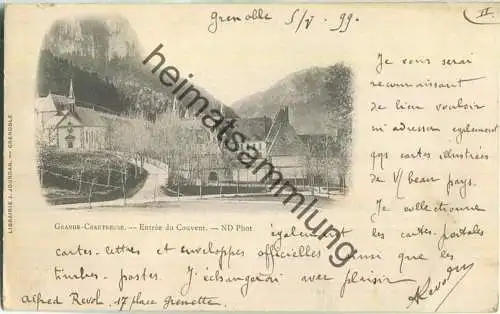 Grenoble 5/V. 99.
II.
Je vous serai
reconnaissant
de bien vouloir
m'adresser également
qqs cartes illustrées
de V/ beau pays.
Je collectionne
également les cartes-postales
cartes-lettres et enveloppes officielles ainsi que les
timbres-postes. J'échangerai avec plaisir
ARevol
Alfred Revol, 17 place Grenette.
GRANDE-CHARTREUSE. — Entrée du Couvent. — ND Phot
LIBRAIRIE J. JOURDAN. — GRENOBLE
heimat-sammlung.com